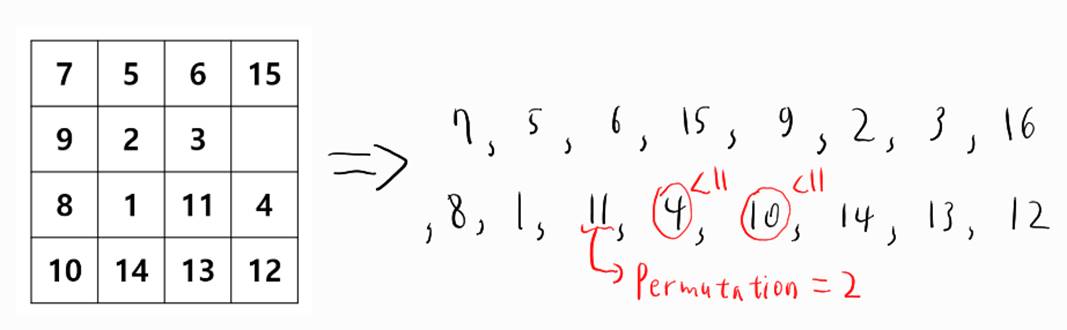 7 5 6 15
9 2 3
8 1 11 4
10 14 13 12
7, 5, 6, 15, 9, 2, 3, 16
<11 <11
, 8, 1, 11, 4, 10, 14, 13, 12
Permutation = 2